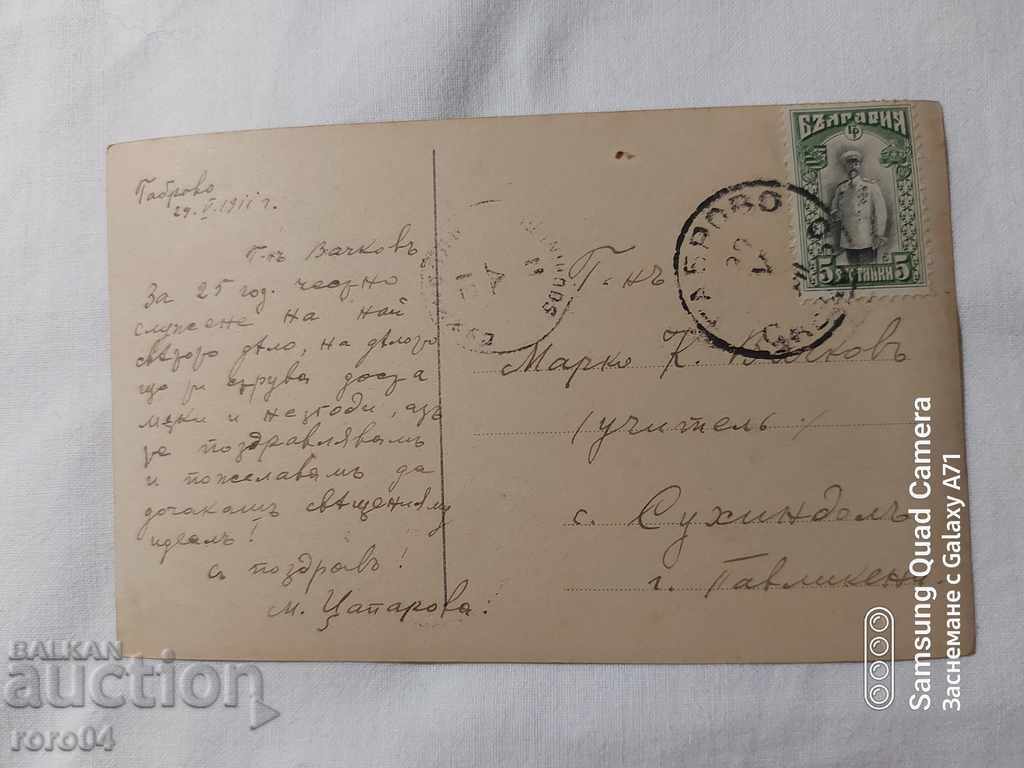 Габрово
29.V.1911 г.
Г-нъ Вачковъ
За 25 год. честно
служене на най
святото дѣло, на дѣлото
що ти струва доста
мѫки и незгоди, азъ
те поздравлявамъ
и пожелавамъ да
дочакашъ свѣщенниятъ
идеалъ!
съ поздравъ!
М. Цапарова.
Г-нъ
Марко К. Вачковъ
/учитель/
с. Сухиндолъ
г. Павликени
БЪЛГАРИЯ
5 СТОТИНКИ 5
ГАБРОВО
V
BALKAN
auction
roro04
Samsung Quad Camera
Заснемане с Galaxy A71